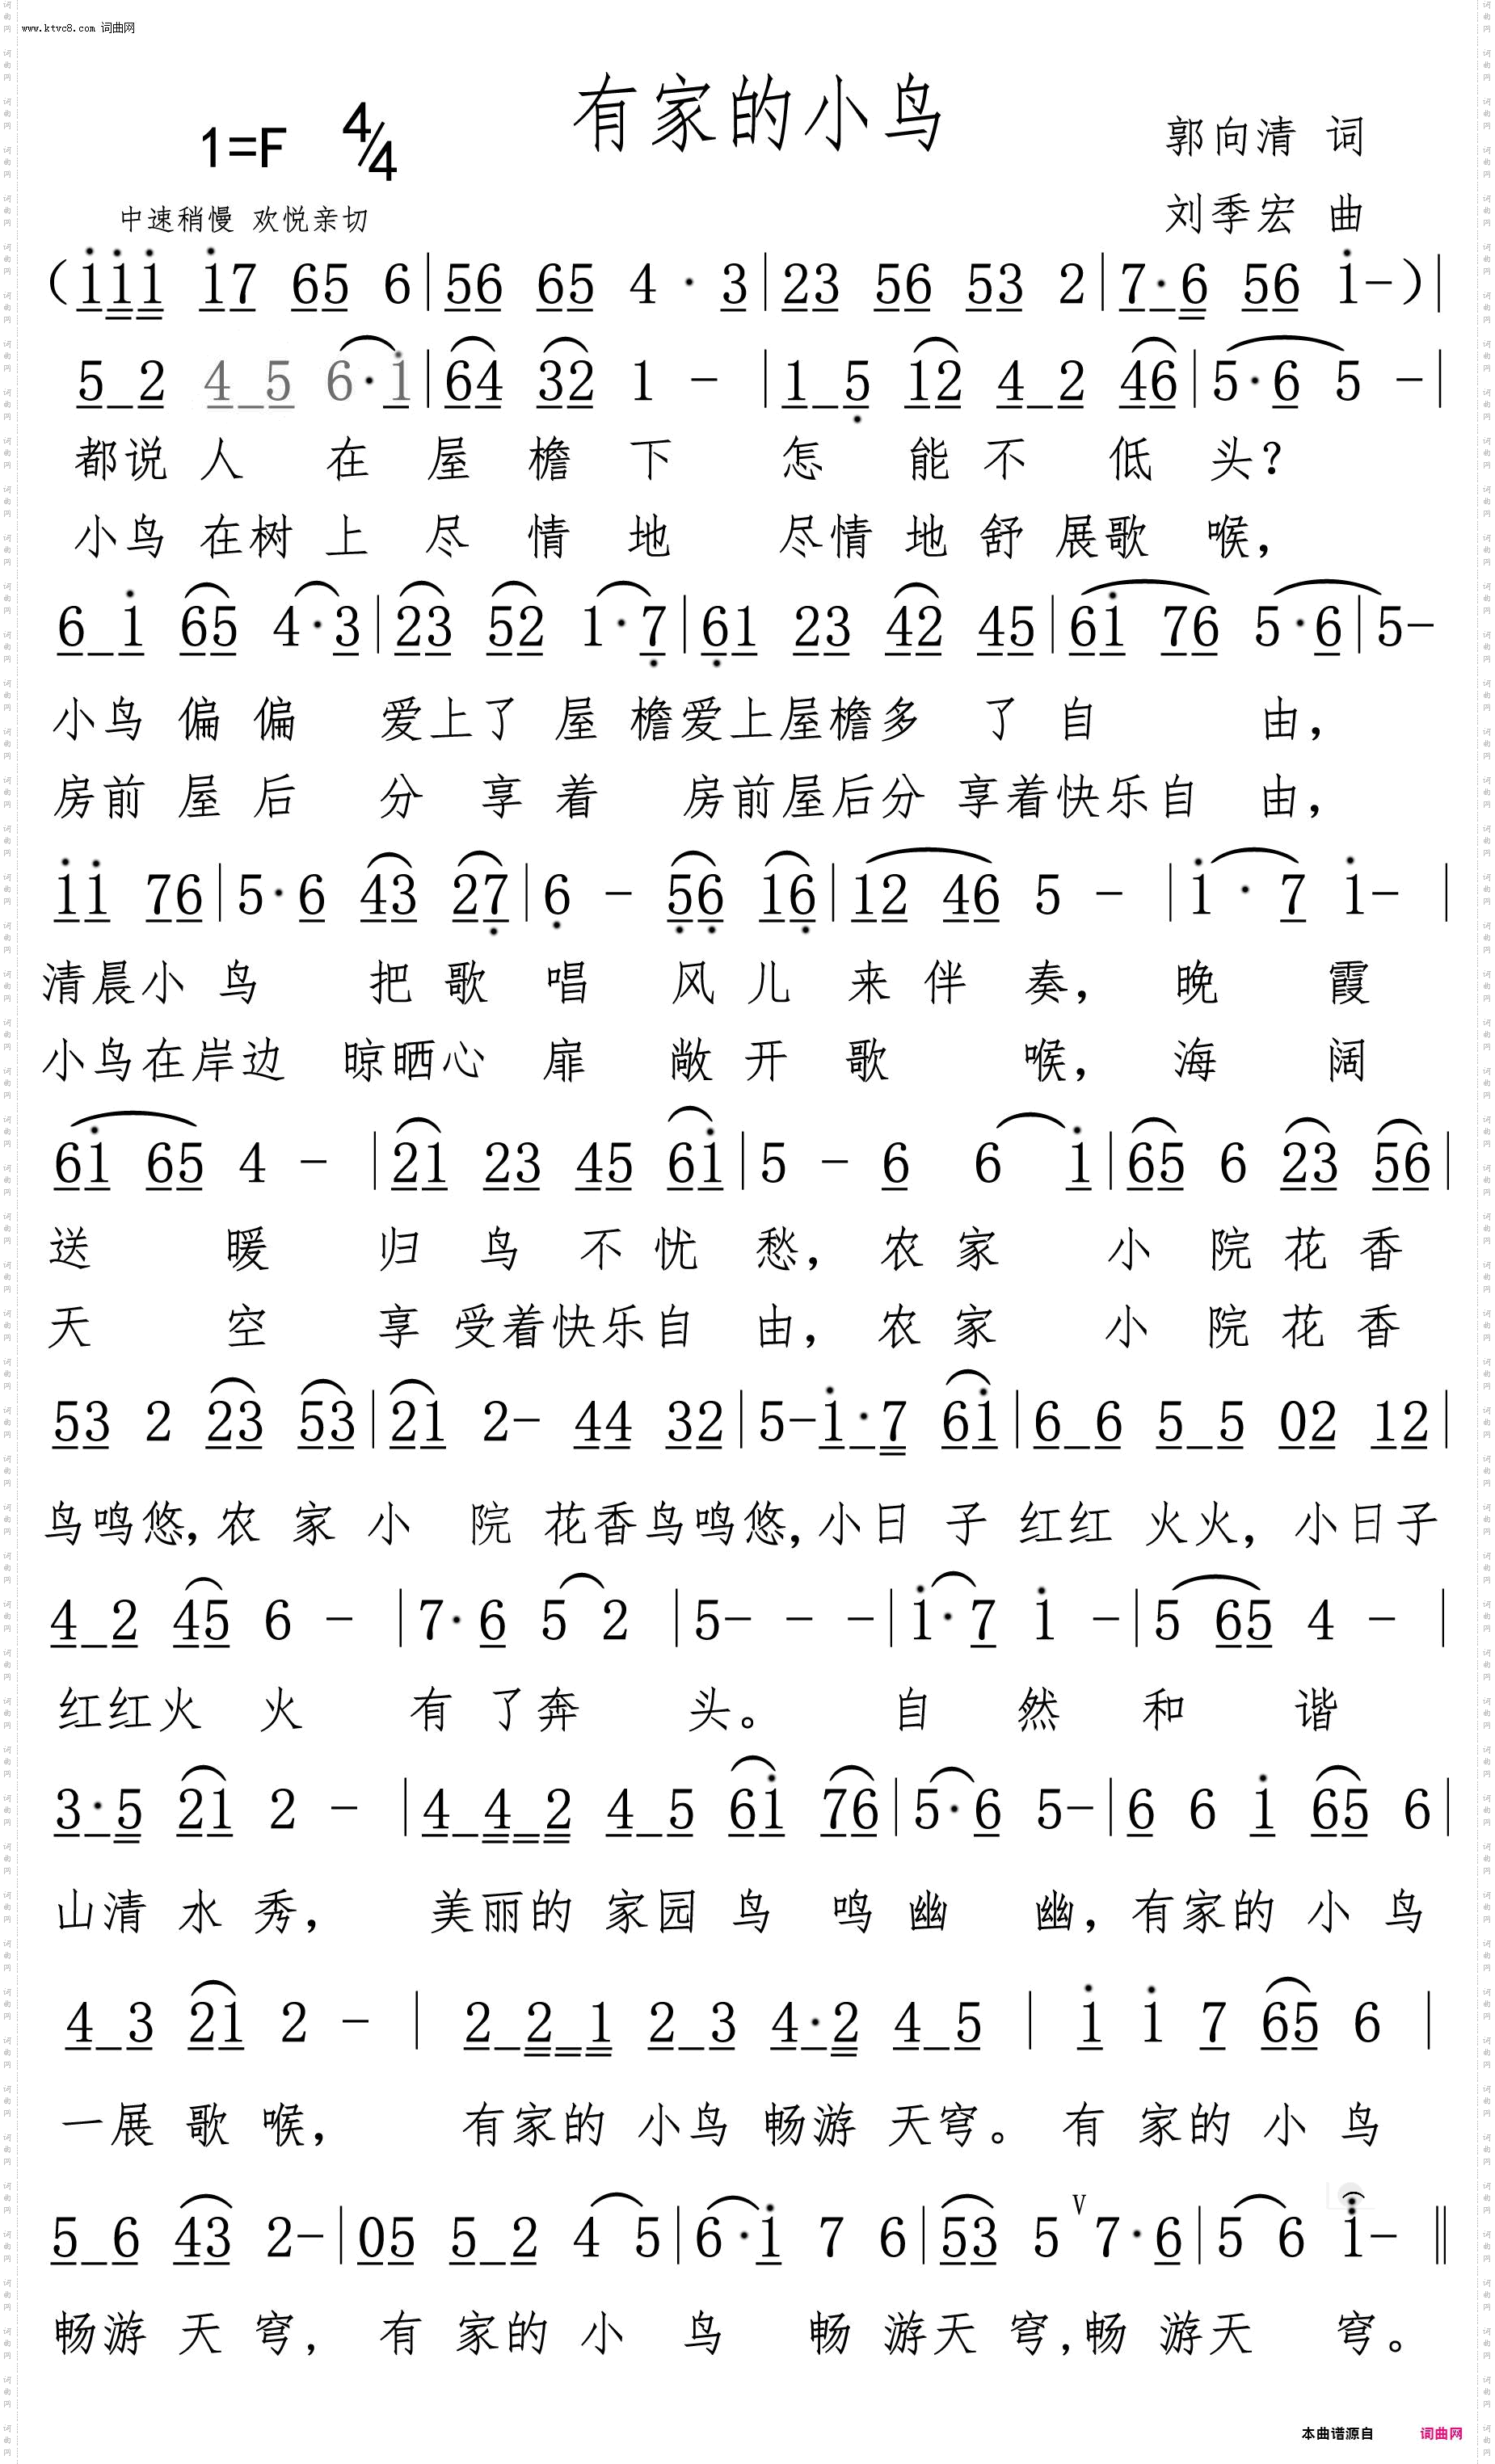 www.ktvc8.com 词曲网
有家的小鸟
1=F 4/4
郭向清 词
中速稍慢 欢悦亲切
刘季宏 曲
(i i i i7 65 6|56 65 4·3|23 56 53 2|7·6 56 i-)|
5 2 4 5 6·i|64 32 1 -|1 5 12 4 2 46|5·6 5 -|
都说 人 在 屋 檐 下 怎 能 不 低 头?
小鸟 在树 上 尽 情 地 尽情 地 舒 展歌 喉,
6 i 65 4·3|23 52 1·7|61 23 42 45|6i 76 5·6|5-
小鸟 偏 偏 爱上了 屋 檐爱上屋檐多 了 自 由,
房前 屋 后 分 享 着 房前屋后分 享着快乐自 由,
ii 76|5·6 43 27|6 - 56 16|12 46 5 -|i·7 i-|
清晨小 鸟 把 歌 唱 风 儿 来 伴 奏, 晚 霞
小鸟在岸边 晾晒心 扉 敞 开 歌 喉, 海 阔
6i 65 4 -|21 23 45 6i|5 - 6 6 i|65 6 23 56|
送 暖 归 鸟 不 忧 愁, 农 家 小 院 花 香
天 空 享 受着快乐自 由, 农 家 小 院 花 香
53 2 23 53|21 2- 44 32|5-i·7 6i|6 6 5 5 02 12|
鸟鸣悠,农 家 小 院 花香鸟鸣悠,小日 子 红红 火火, 小日子
4 2 45 6 -|7·6 5 2|5- - -|i·7 i -|5 65 4 -|
红红火 火 有 了奔 头。 自 然 和 谐
3·5 21 2 -|4 4 2 4 5 6i 76|5·6 5-|6 6 i 65 6|
山清 水 秀, 美丽的 家园 鸟 鸣 幽 幽,有家的 小 鸟
4 3 21 2 -|2 2 1 2 3 4·2 4 5|i i 7 65 6|
一展 歌 喉, 有家的 小鸟 畅游 天穹。有 家的 小 鸟
5 6 43 2-|05 5 2 4 5|6·i 7 6|53 5 V 7·6|5 6 i-‖
畅游 天 穹, 有 家的 小 鸟 畅 游天 穹,畅 游天 穹。
本曲谱源自 词曲网